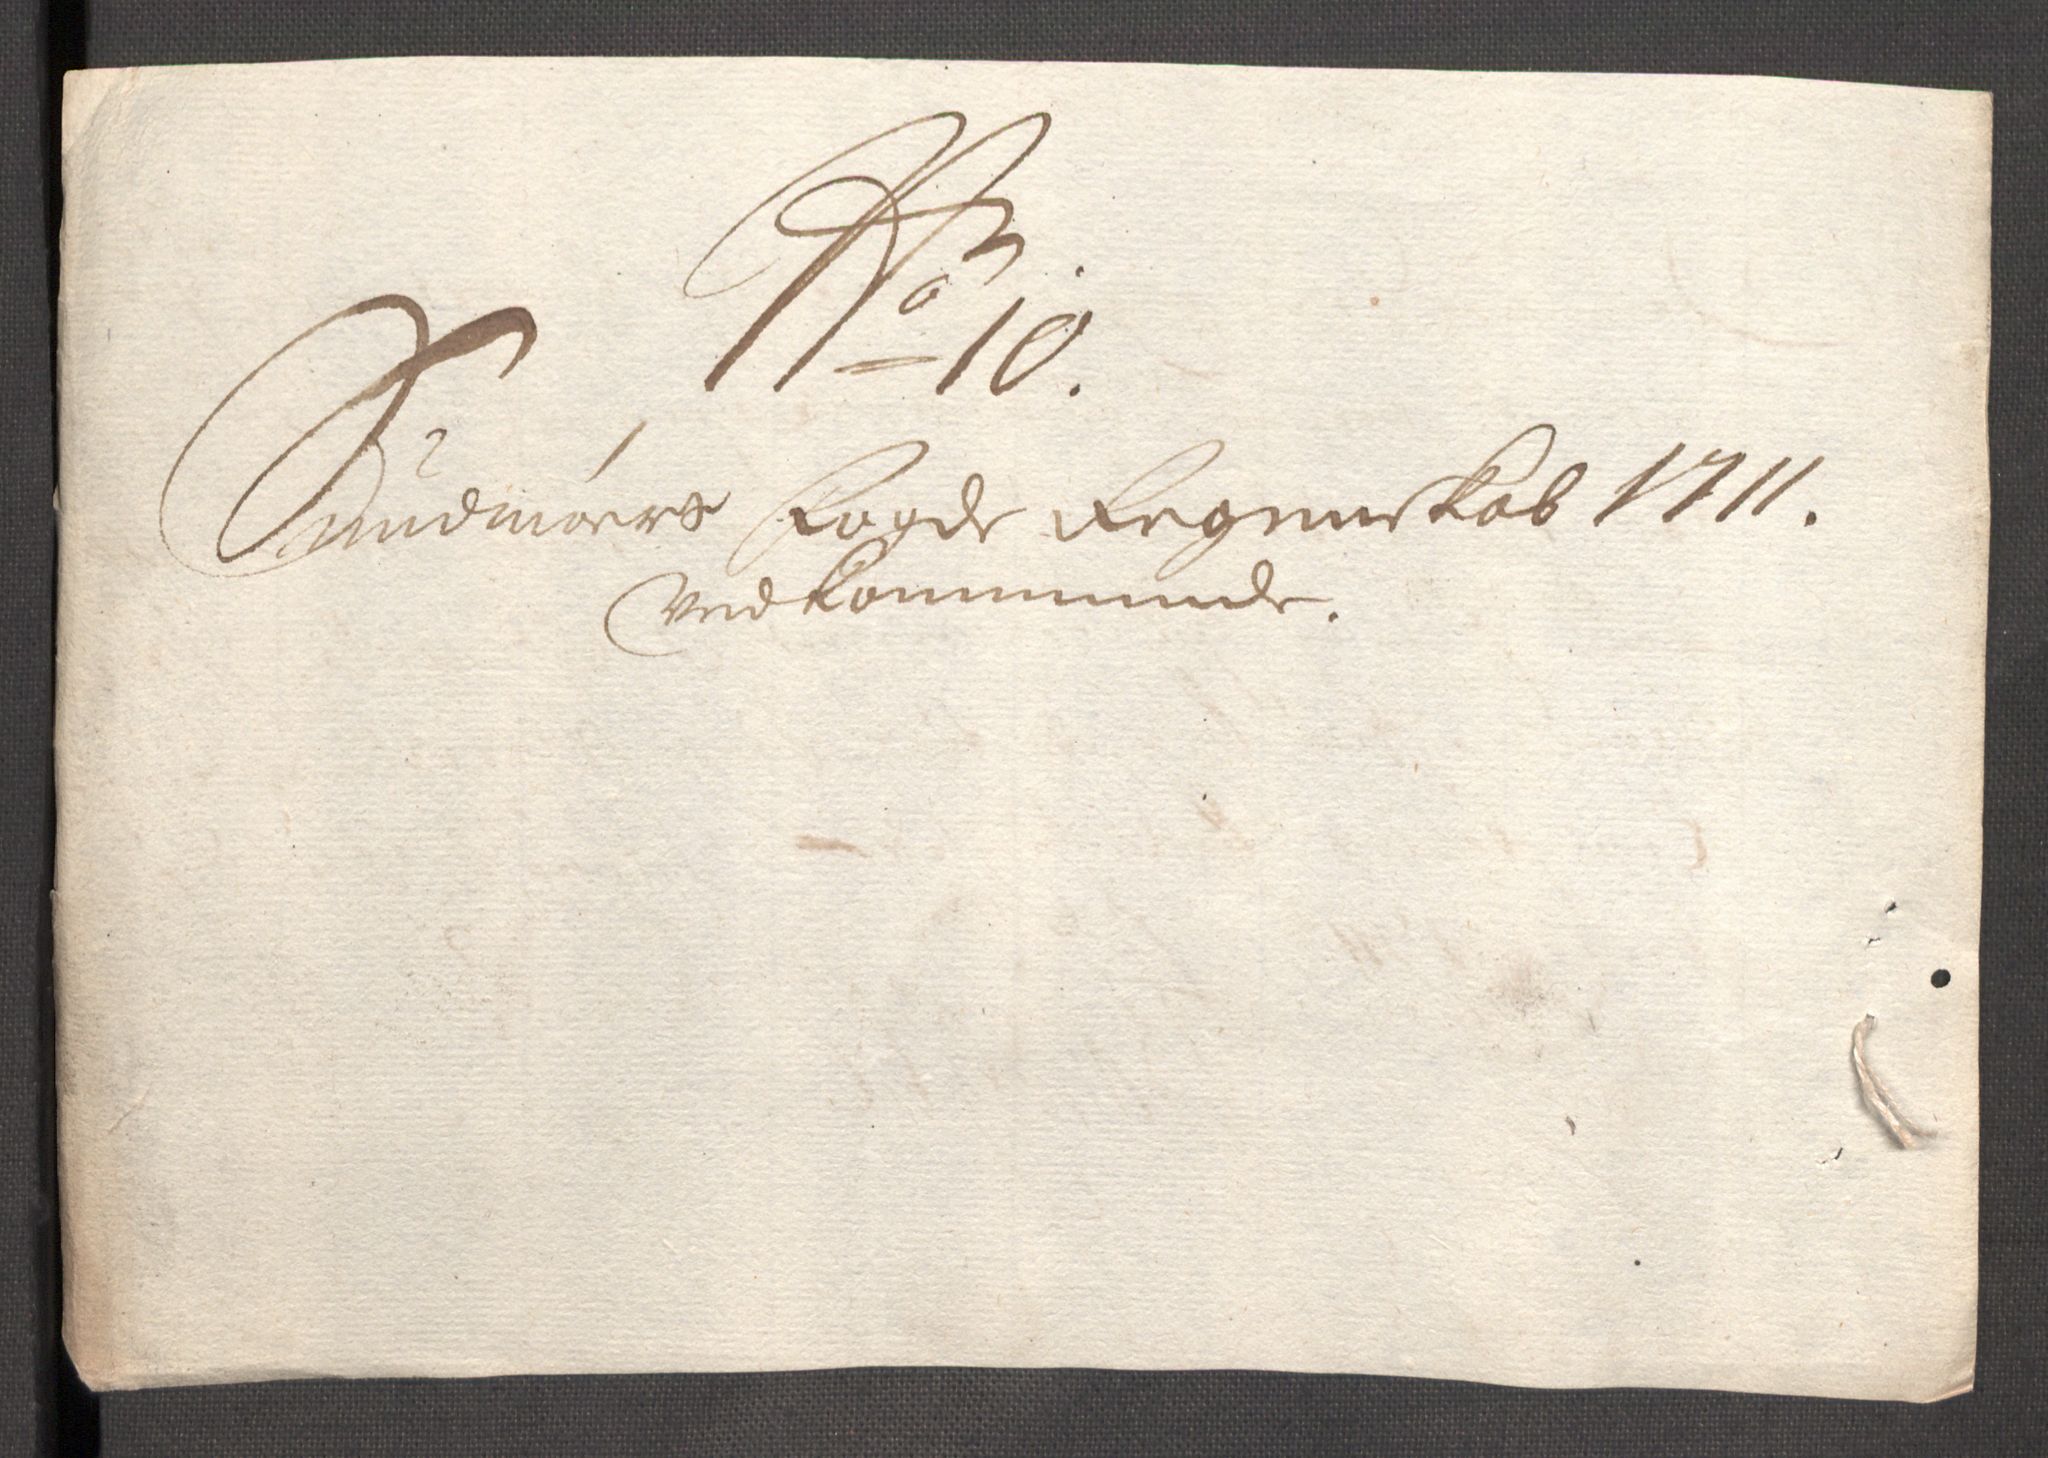 No 10.
Sundmøers Fogde Regenskab 1711.
vedkommende.